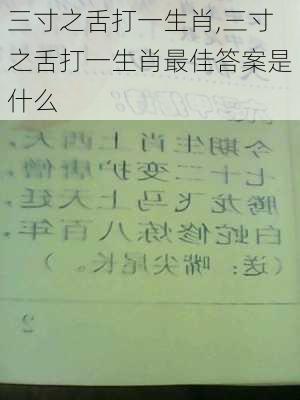 三寸之舌打一生肖,三寸
之舌打一生肖最佳答案是
什么
今期生肖上西天，
七十二变护唐僧，
腾龙飞马上天廷，
白蛇修炼八百年，
（送：嘴尖尾长。）
2